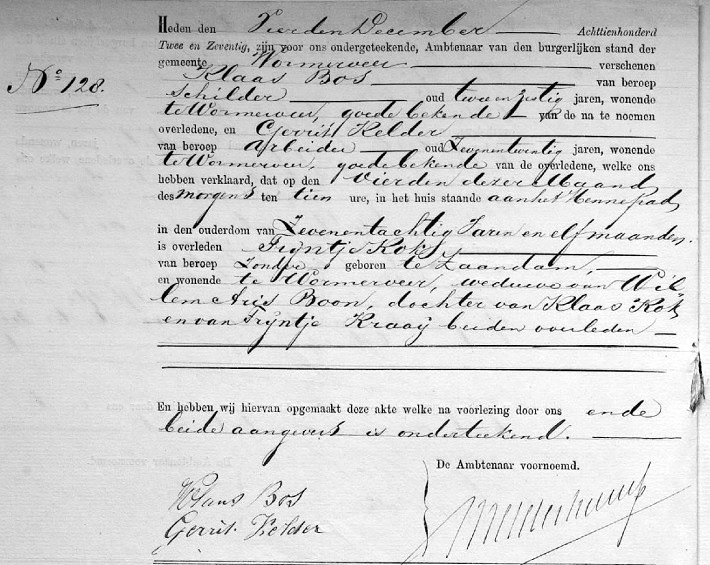 Heden den Vierden December Achttienhonderd
Twee en Zeventig, zijn voor ons ondergeteekende, Ambtenaar van den burgerlijken stand der
gemeente Wormerveer verschenen
Klaas Bos van beroep
No 128.
Schilder oud tweenzestig jaren, wonende
te Wormerveer, goede bekende van de na te noemen
overledene, en Gerrit Kelder
van beroep Arbeider oud Zevenentwintig jaren, wonende
te Wormerveer, goede bekende van de overledene, welke ons
hebben verklaard, dat op den Vierden dezer Maand
des morgens ten tien ure, in het huis staande aan het Hennepad
in den ouderdom van Zevenentachtig Jaren en elf maanden.
is overleden Trijntje Koks
van beroep Zonder, geboren te Zaandam,
en wonende te Wormerveer, weduwe van Wil
lem Aris Boon, dochter van Klaas Kok
en van Trijntje Kraaij beiden overleden
En hebben wij hiervan opgemaakt deze akte welke na voorlezing door ons en de
beide aangevers is onderteekend.
De Ambtenaar voornoemd.
Klaas Bos
Gerrit Kelder